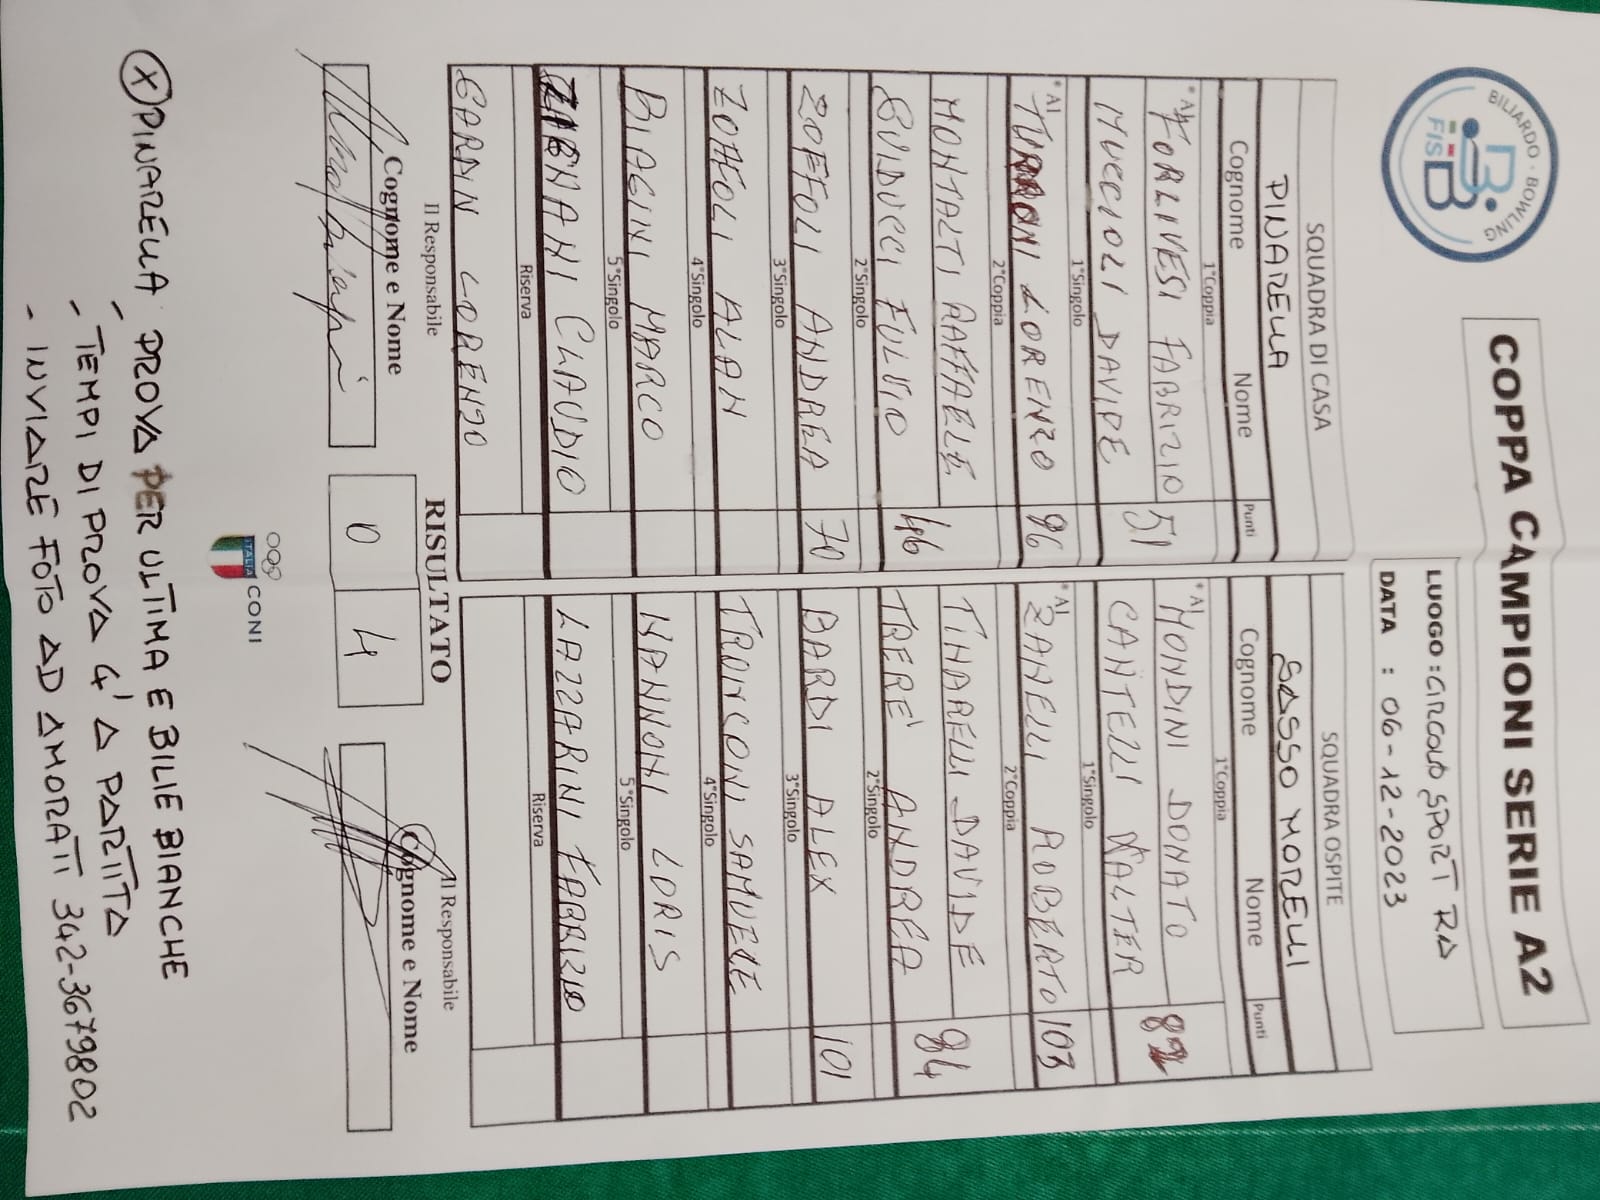 BILIARDO · BOWLING
FISBB
COPPA CAMPIONI SERIE A2
LUOGO : CIRCOLO SPORT RA
DATA : 06-12-2023
SQUADRA DI CASA SQUADRA OSPITE
PINARELLA SASSO MORELLI
Cognome Nome Punti Cognome Nome Punti
1°Coppia 1°Coppia
*A1 FORLIVESI FABRIZIO 51 *A1 MONDINI DONATO 82
MUCCIOLI DAVIDE CANTELLI WALTER
1°Singolo 1°Singolo
*A1 TURRONI LORENZO 96 *A1 ZANELLI ROBERTO 103
2°Coppia 2°Coppia
MONTALTI RAFFAELE 46 TINARELLI DAVIDE 84
GUIDUCCI FULVIO TRERE' ANDREA
2°Singolo 2°Singolo
ZOFFOLI ANDREA 70 BARDI ALEX 101
3°Singolo 3°Singolo
ZOFFOLI ALAN TRONCONI SAMUELE
4°Singolo 4°Singolo
BIAGINI MARCO NANNONI LORIS
5°Singolo 5°Singolo
CLAUDIO LAZZARINI FABRIZIO
Riserva Riserva
LORENZO
Il Responsabile RISULTATO Il Responsabile
Cognome e Nome 0 4 Cognome e Nome
ITALIA CONI
(X) PINARELLA PROVA PER ULTIMA E BILIE BIANCHE
- TEMPI DI PROVA 4' A PARTITA
- INVIARE FOTO AD AMORATI 342-3679802